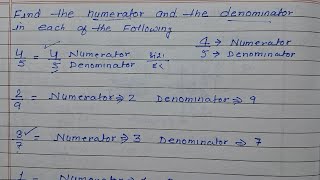 Find the numerator and the denominator
in each of the following
4/5 = 4/5 Numerator Denominator
4 → Numerator
5 → Denominator
2/9 = Numerator ⇒ 2 Denominator ⇒ 9
3/7 = Numerator ⇒ 3 Denominator ⇒ 7